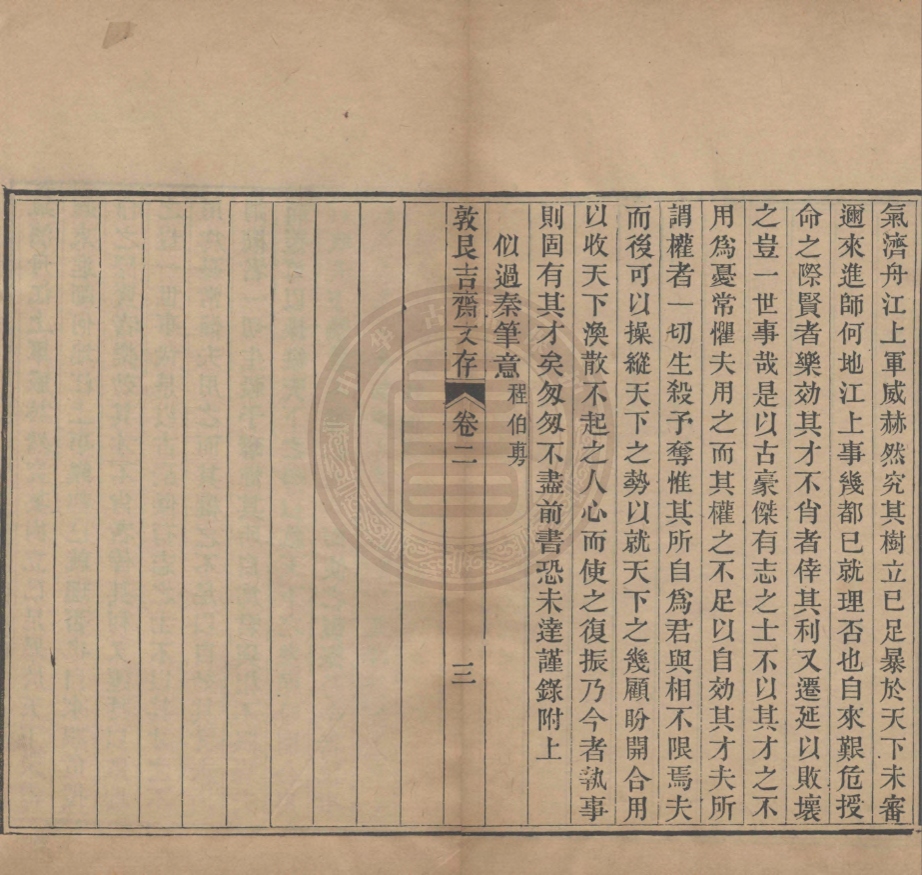 氣濟舟江上軍威赫然究其樹立已足暴於天下未審
邇來進師何地江上事幾都已就理否也自來艱危授
命之際賢者樂効其才不肖者倖其利又遷延以敗壞
之豈一世事哉是以古豪傑有志之士不以其才之不
用爲憂常懼夫用之而其權之不足以自効其才夫所
謂權者一切生殺予奪惟其所自爲君與相不限焉夫
而後可以操縱天下之勢以就天下之幾顧盼開合用
以收天下渙散不起之人心而使之復振乃今者執事
則固有其才矣匆匆不盡前書恐未達謹錄附上
似過秦筆意程伯旉
敦艮吉齋文存 卷二 三